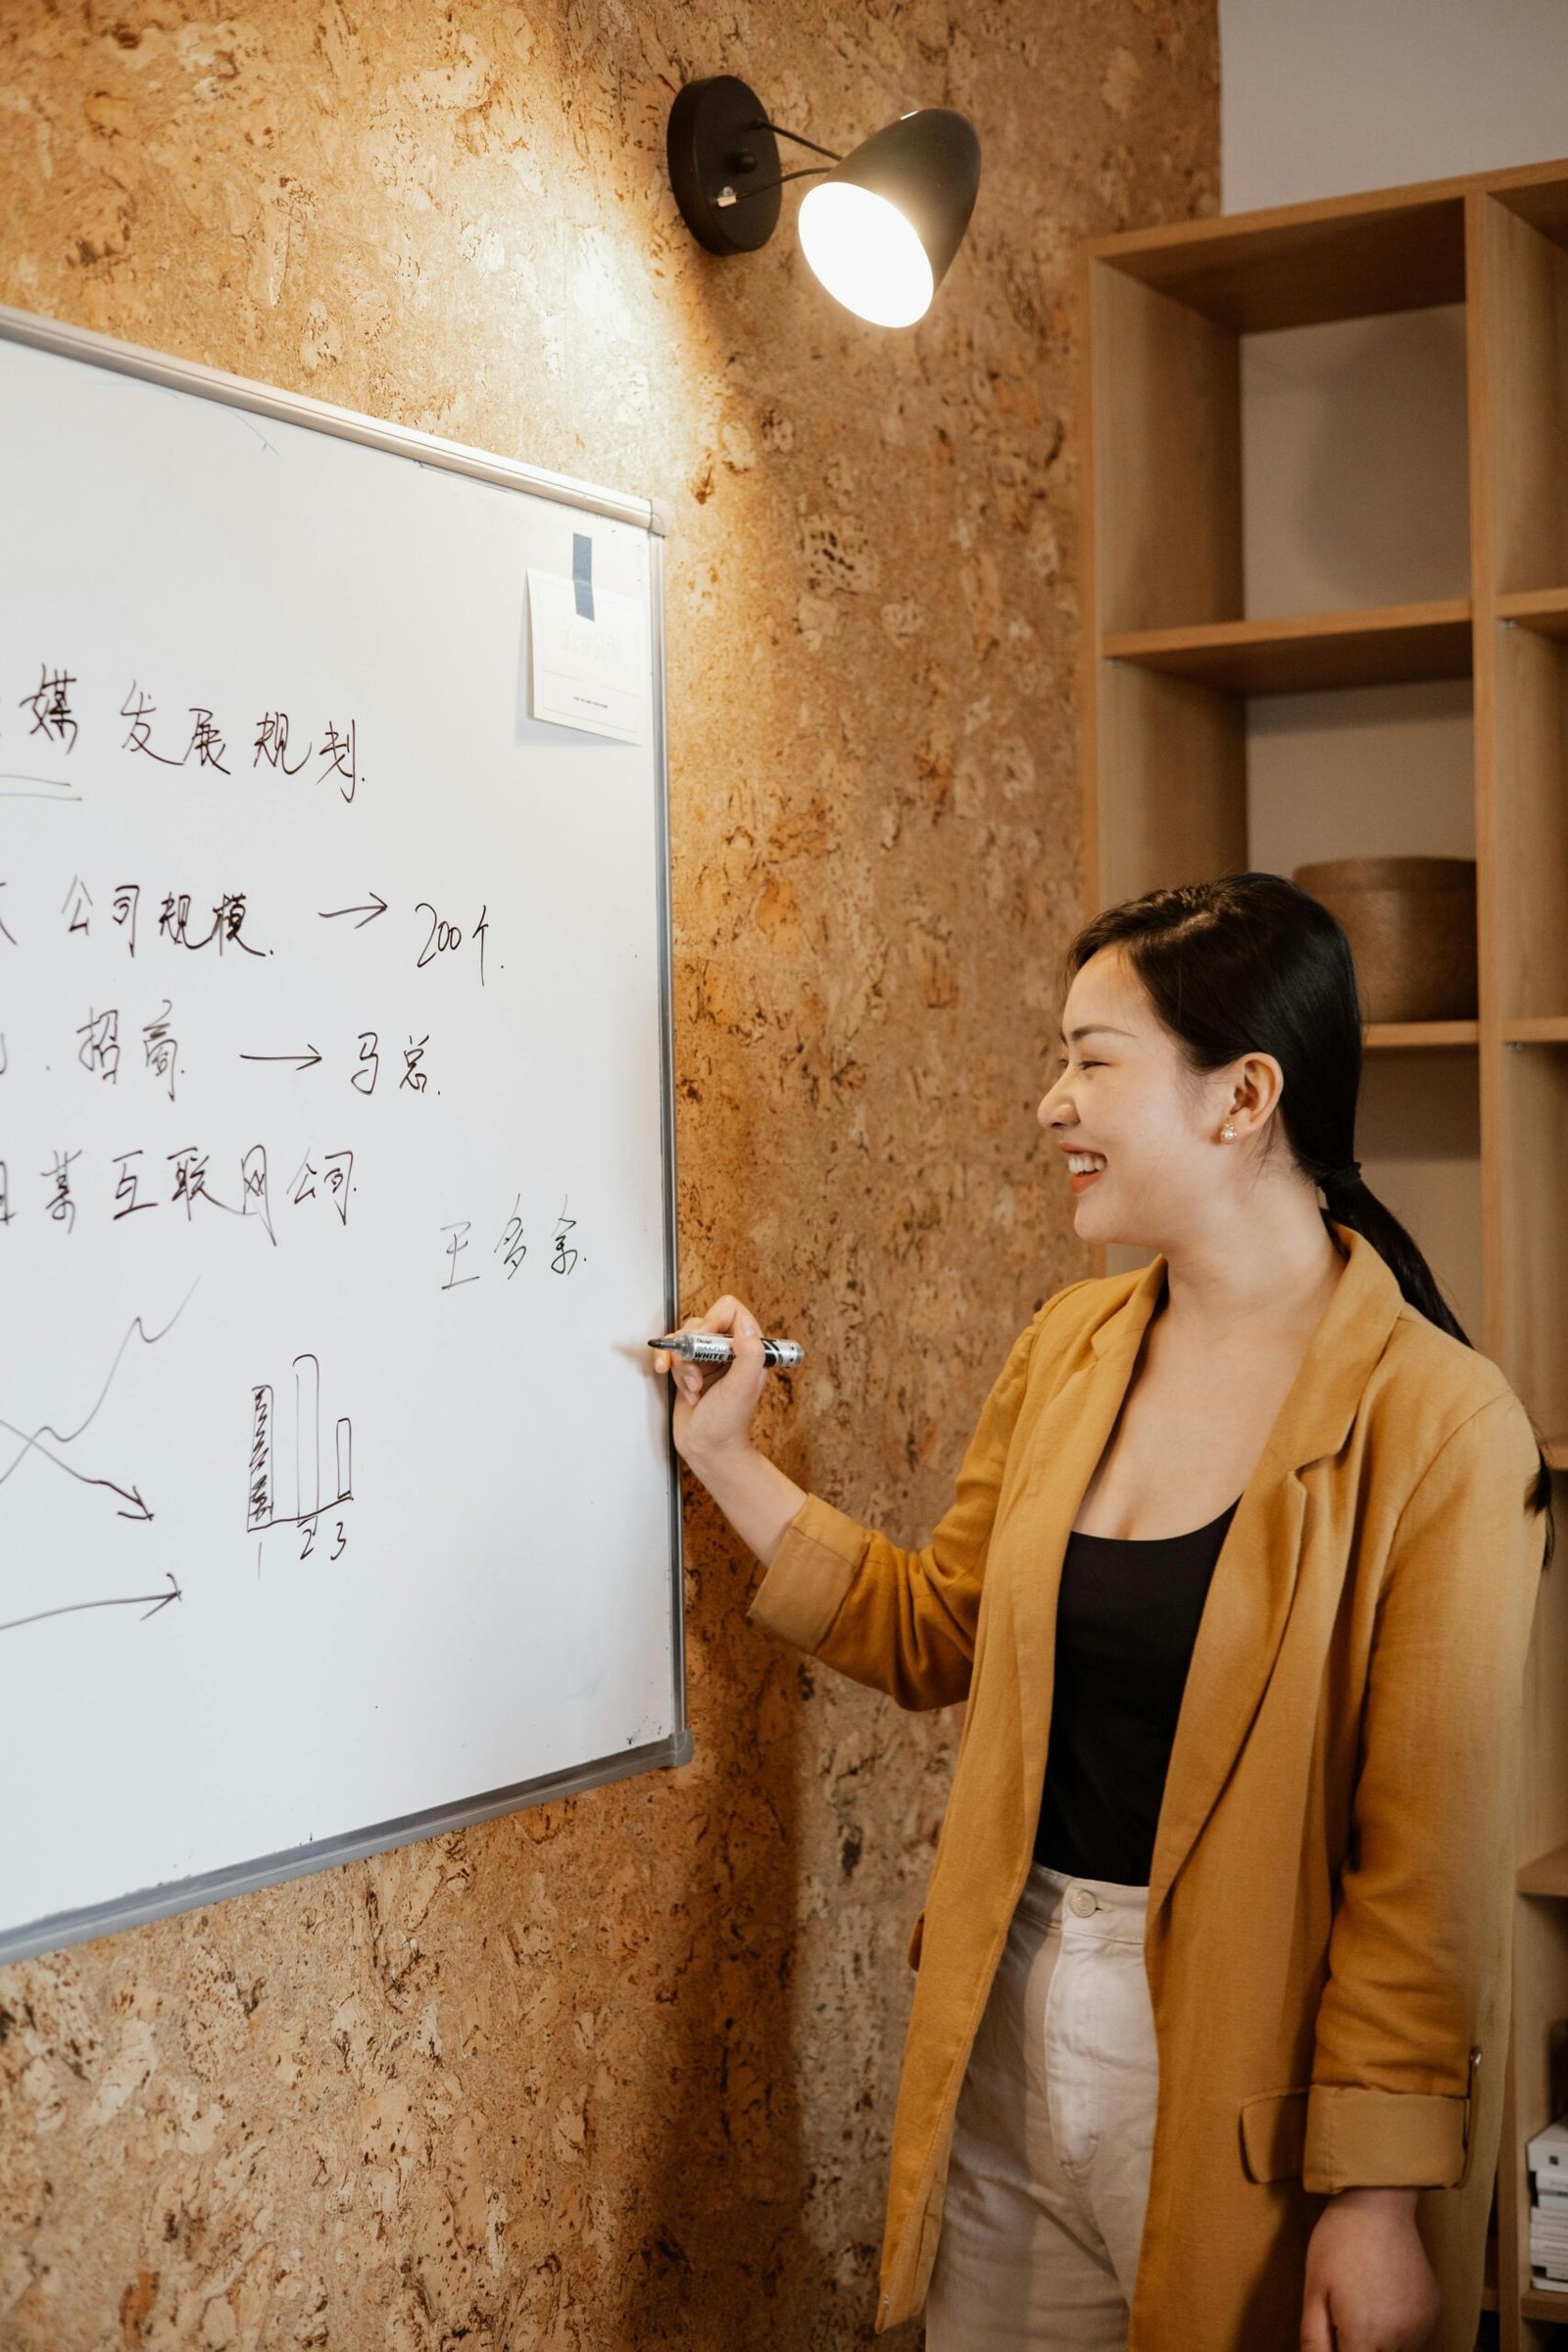 媒 发展规划.
公司规模. → 200个.
招商. → 马总.
某互联网公司.
王多余.
1 2 3
WHITE B